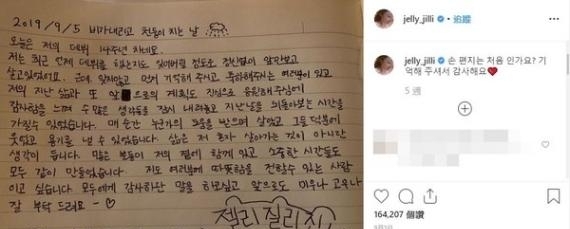 2019/9/5 비가내리고 천둥이 치는 날
오늘은 저의 데뷔 14주년 차네요.
저는 최근 언제 데뷔를 하는지도 잊어버릴 정도로 정신없이 앞만보고
살고있었어요. 근데, 잊지않고 먼저 기억해 주시고 축하해주시는 여러분이 있고
저의 지난 삶과 또 앞으로의 계획도 진심으로 응원해주심에
감사함을 느끼며 수많은 생각들을 잠시 내려놓고 지난날을 되돌아보는 시간을
가질수 있었습니다. 매 순간 누군가의 도움을 받으며 살았고 그들 덕분에
웃었고 용기를 낼 수 있었습니다. 삶은 저 혼자 살아가는 것이 아니란
생각이 듭니다. 많은 분들이 저의 곁에 함께 있고 소중한 시간들도
모두 같이 만들었습니다. 저도 여러분에게 따뜻함을 전할수 있는 사람
이고 싶습니다. 모두에게 감사하단 말을 하고싶고 앞으로도 미우나 고우나
잘 부탁 드려요 ~ ♡
젤리질리죠
jelly_jilli • 追蹤
jelly_jilli 손 편지는 처음 인가요? 기
억해 주셔서 감사해요❤
5 週
164,207 個讚
9月5日